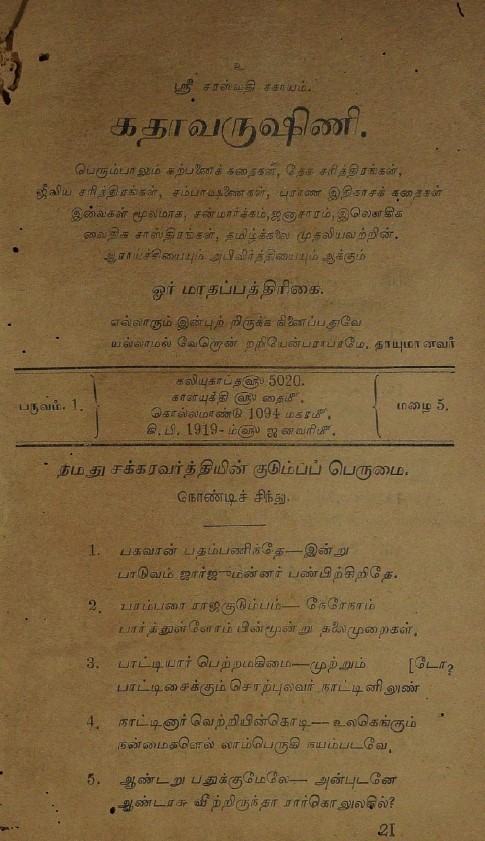 உ
ஸ்ரீ சரஸ்வதி சகாயம்.
கதாவருஷிணி.
பெரும்பாலும் கற்பனைக் கதைகள், தேச சரித்திரங்கள்,
ஜீவிய சரித்திரங்கள், சம்பாஷணைகள், புராண இதிகாசக் கதைகள்
இவைகள் மூலமாக, சன்மார்க்கம், ஜனாசாரம், இலௌகிக
வைதிக சாஸ்திரங்கள், தமிழ்க்கலை முதலியவற்றின்.
ஆராய்ச்சியையும் அபிவிர்த்தியையும் ஆக்கும்
ஓர் மாதப்பத்திரிகை.
எல்லாரும் இன்புற் றிருக்க நினைப்பதுவே
யல்லாமல் வேறொன் றறியேன்பராபரமே. தாயுமானவர்
பருவம். 1.
கலியுகாப்த௵ 5020.
காளயுக்தி ௵ தை௴.
கொல்லமாண்டு 1094 மகர௴.
கி. பி. 1919-ம்௵ ஜனவரி௴.
மழை 5.
நமது சக்கரவர்த்தியின் குடும்பப் பெருமை.
நொண்டிச் சிந்து.
1. பகவான் பதம்பணிந்தே—இன்று
பாடுவம் ஜார்ஜுமன்னர் பண்பிற்சிறிதே.
2. யாம்பரை ராஜகுடும்பம்— நேரேநாம்
பார்த்துள்ளோம் பின்மூன்று தலைமுறைகள்.
3. பாட்டியார் பெற்றமகிமை—முற்றும் [டோ?
பாட்டிசைக்கும் சொற்புலவர் நாட்டினிலுண்
4. நாட்டினார் வெற்றியின்கொடி— உலகெங்கும்
நன்மைகளெல் லாம்பெருகி நயம்படவே.
5. ஆண்டறு பதுக்குமேலே— அன்புடனே
ஆண்டரசு வீற்றிருந்தா ரார்கொலுலகில்?
21